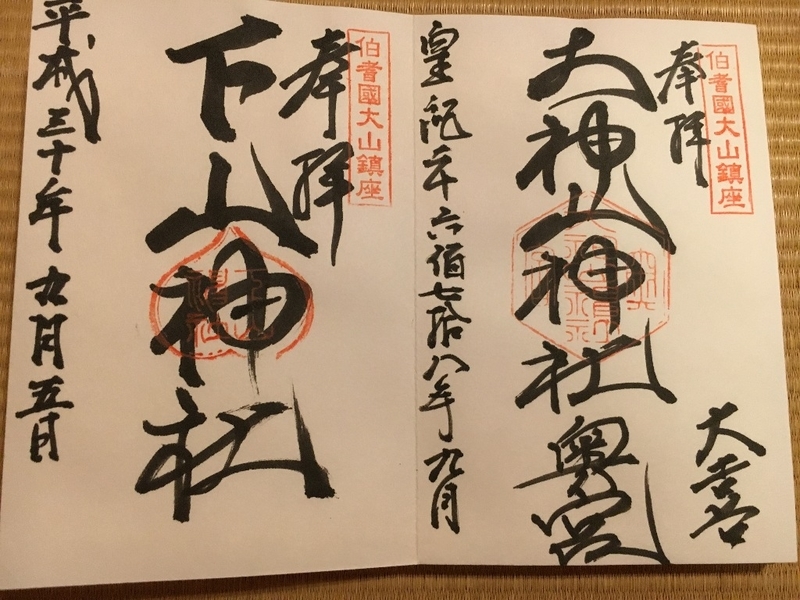 伯耆國大山鎮座
奉拜
大神山神社奥宮
皇紀二千六佰七拾八年九月
伯耆國大山鎮座
奉拜
下山神社
平成三十年九月五日